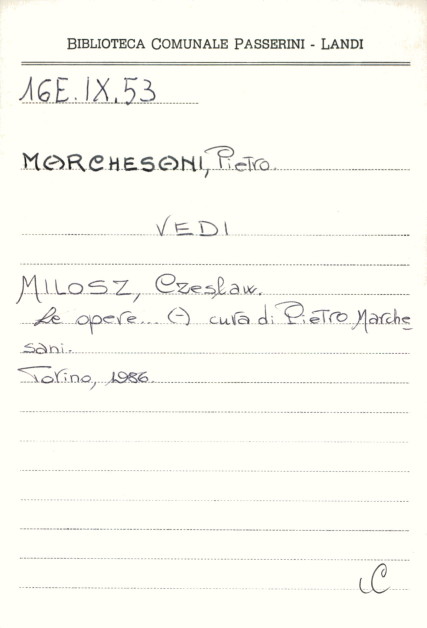 BIBLIOTECA COMUNALE PASSERINI - LANDI
16E.IX.53
MARCHESANI, Pietro.
VEDI
MILOSZ, Czesław.
Le opere... (-) cura di Pietro Marche
sani.
Torino, 1986.